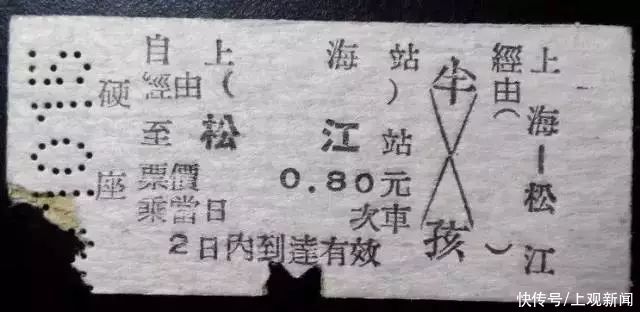 自上海站
經由( )
至松江站
票價 0.80元
乘當日 次車
2日内到達有效
硬座
半孩
上海—松江
經由( )
快传号/上观新闻